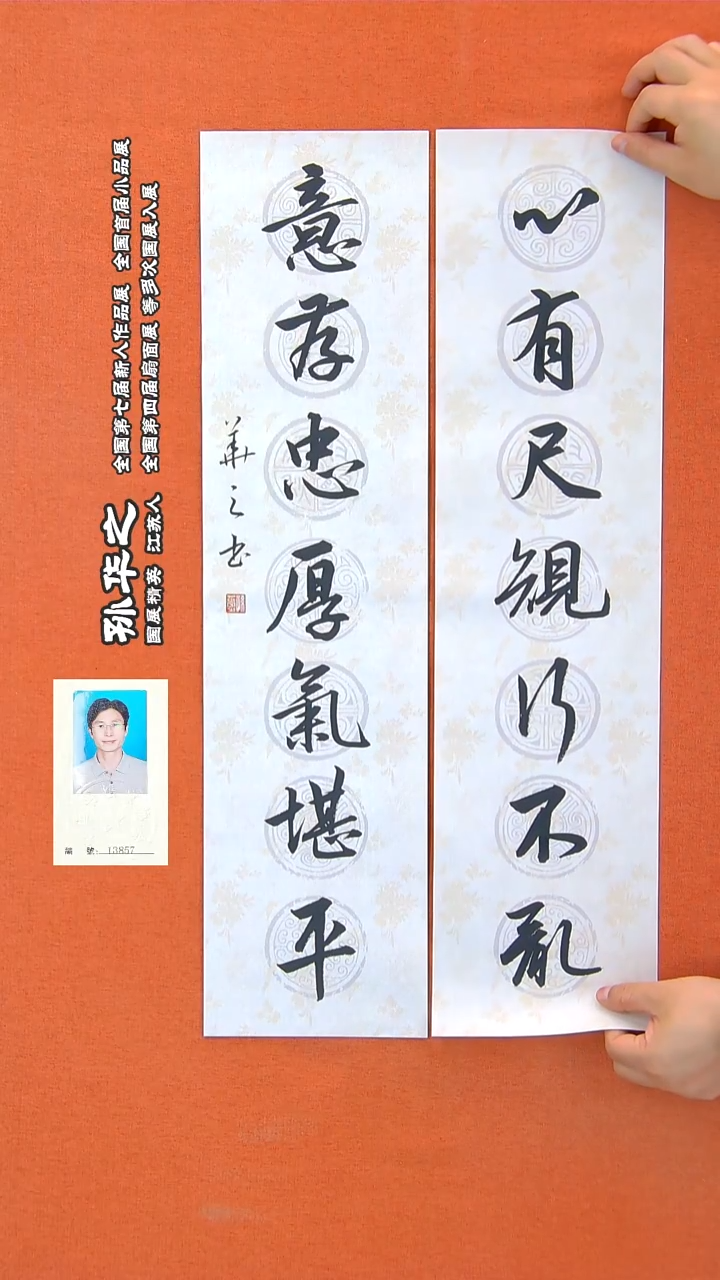 心有尺規行不亂
意存忠厚氣堪平
華之书
孙华之
国展精英 江苏人
全国第七届新人作品展 全国首届小品展
全国第四届扇面展 等多次国展入展
編 號: 13857